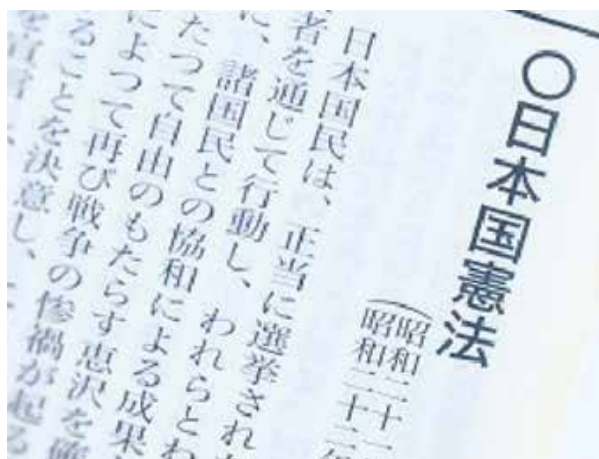 〇日本国憲法
(昭和二十一
昭和二十二年
日本国民は、正当に選挙された
者を通じて行動し、われらとわ
に、諸国民との協和による成果
たつて自由のもたらす恵沢を確
によつて再び戦争の惨禍が起る
ることを決意し、
を宣言し、